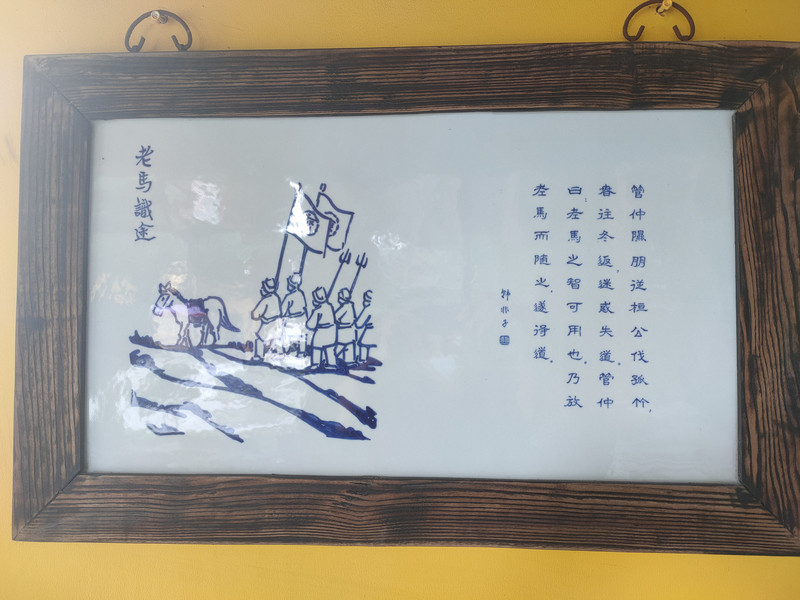 老馬識途
管仲隰朋從桓公伐孤竹,
春往冬返,迷惑失道。管仲
曰,老馬之智可用也。乃放
老馬而随之。遂得道。
韩非子